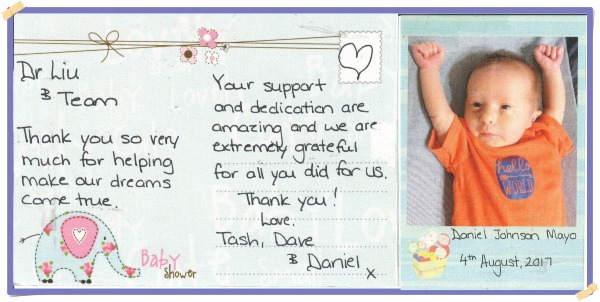 Dr Liu
& Team
Thank you so very
much for helping
make our dreams
come true.
Baby
Shower
Your support
and dedication are
amazing and we are
extremely grateful
for all you did for us.
Thank you!
Love.
Tash, Dave
& Daniel x
hello
WORLD
Daniel Johnson Mayo
4th August, 2017